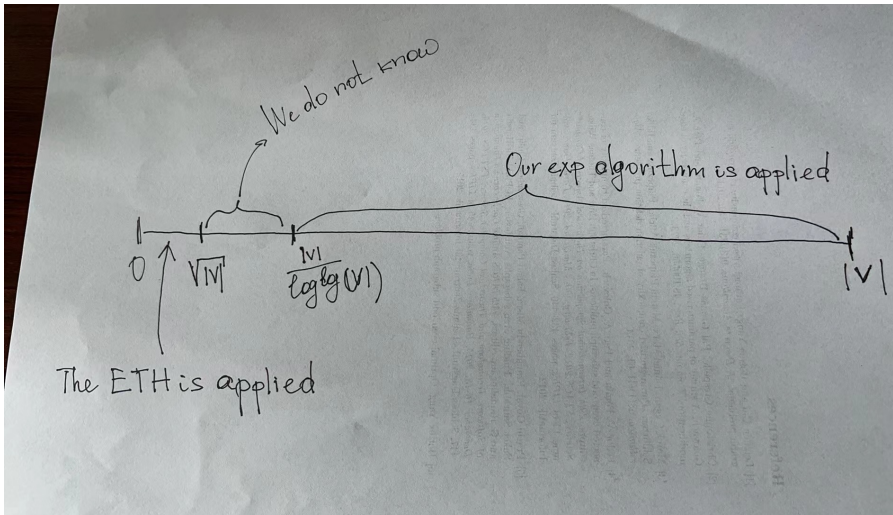 We do not know
Our exp algorithm is applied
0
√|V|
|V|
loglog(|V|)
|V|
The ETH is applied